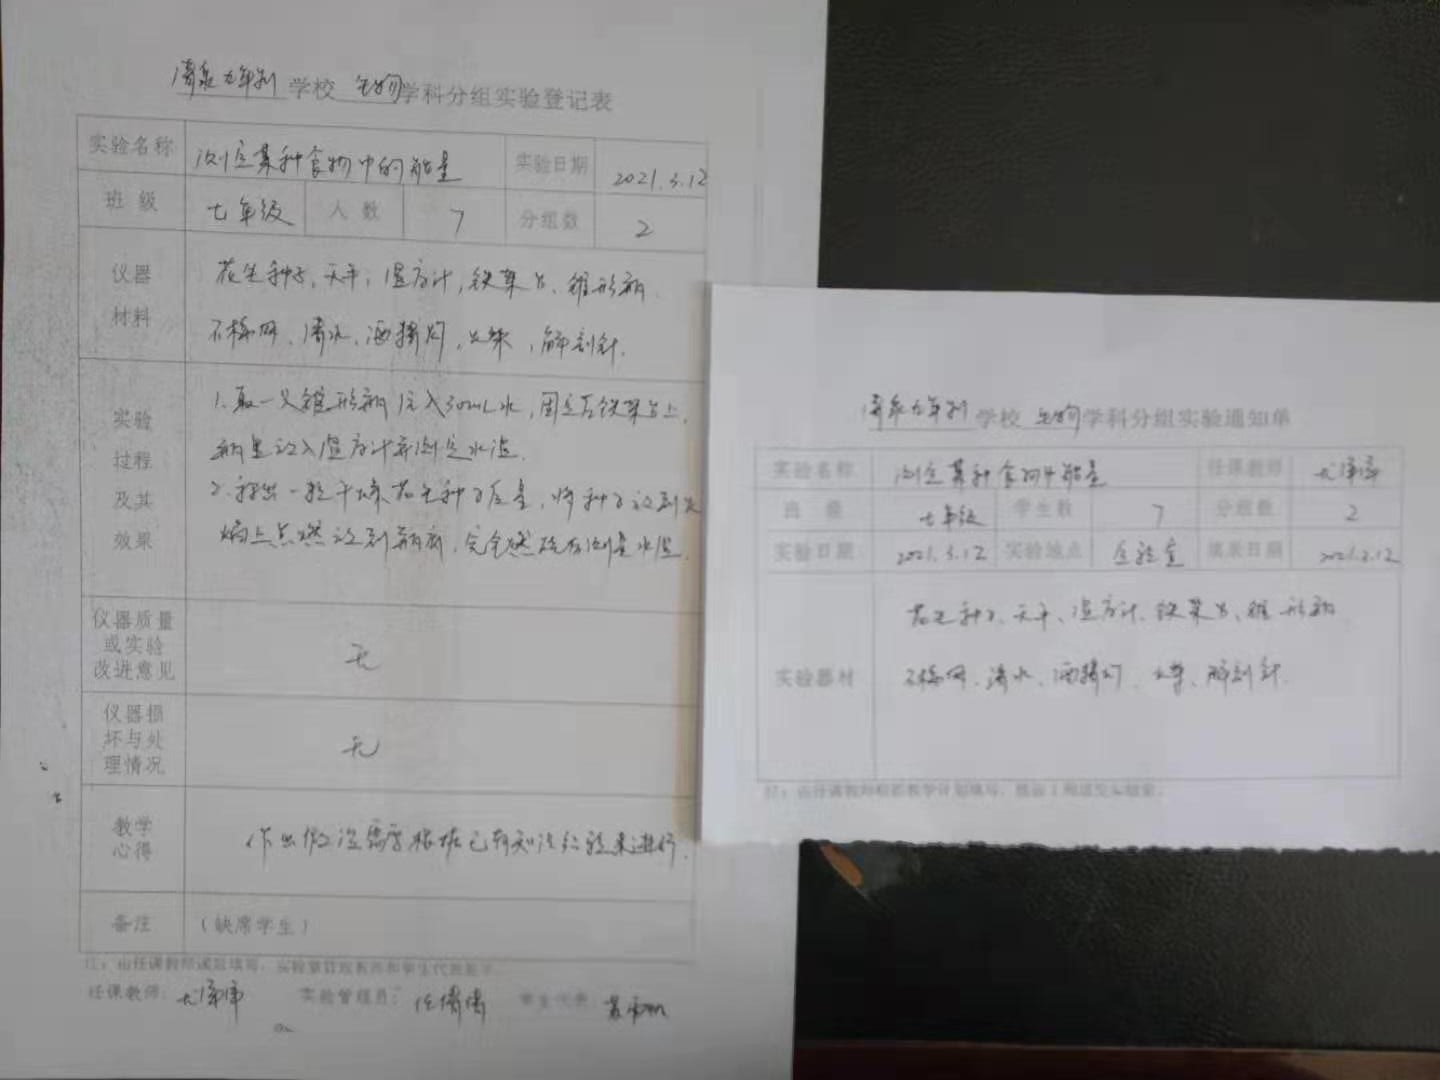 清泉九年制 学校 生物 学科分组实验登记表
实验名称 测定某种食物中的能量 实验日期 2021.3.12
班 级 七年级 人 数 7 分组数 2
仪器 花生种子,天平,温度计,铁架台、锥形瓶
材料 石棉网、清水、酒精灯,火柴,解剖针.
实验 1.取一只锥形瓶注入30mL水,固定在铁架台上,
过程 瓶里放入温度计并测定水温.
及其 2.称出一粒干燥花生种子质量,将种子放到火
效果 焰上点燃放到瓶底,完全燃烧后测量水温.
仪器质量
或实验 无
改进意见
仪器损
坏与处 无
理情况
教学
心得 作出假设需要根据已有知识经验来进行.
备注 (缺席学生)
任课教师: 实验管理员: 学生代表:
清泉九年制 学校 生物 学科分组实验通知单
实验名称 测定某种食物中能量 任课教师
班 级 七年级 学生数 7 分组数 2
实验日期 2021.3.12 实验地点 实验室 填表日期 2021.3.12
花生种子、天平、温度计、铁架台、锥形瓶
实验器材 石棉网、清水、酒精灯、火柴、解剖针.